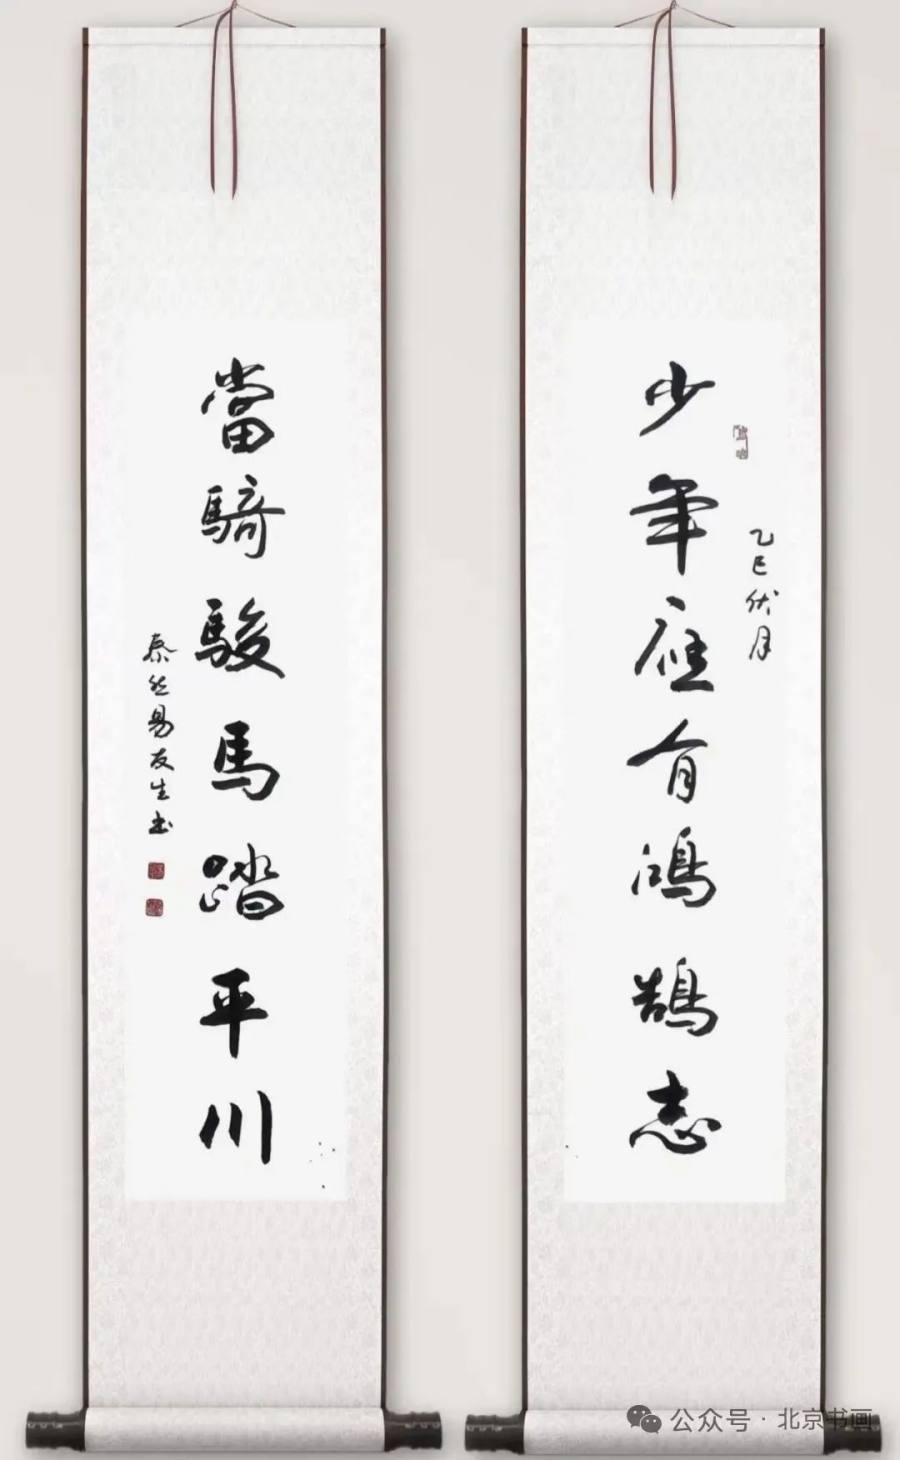 少年应有鸿鹄志
乙巳伏月
當騎駿馬踏平川
泰然易友生书
公众号·北京书画